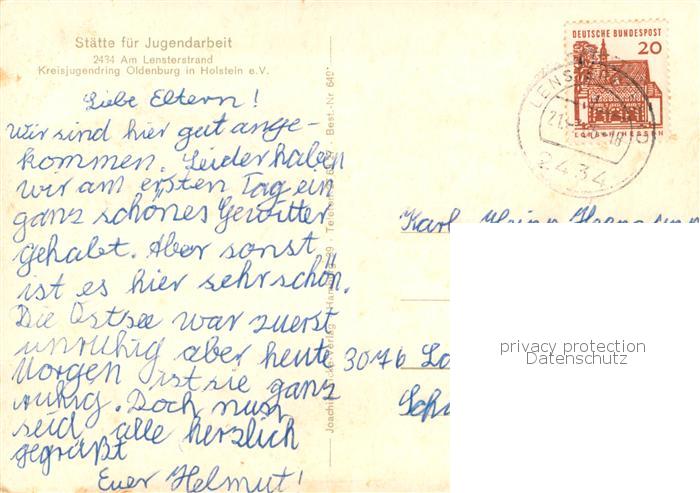 Stätte für Jugendarbeit
2434 Am Lensterstrand
Kreisjugendring Oldenburg in Holstein e.V.
Liebe Eltern!
Wir sind hier gut ange-
kommen. Leider haben
wir am ersten Tag ein
ganz schönes Gewitter
gehabt. Aber sonst
ist es hier sehr schön.
Die Ostsee war zuerst
unruhig aber heute
Morgen ist sie ganz
ruhig. Doch nun
seid alle herzlich
gegrüßt
Euer Helmut!
Best.-Nr.
DEUTSCHE BUNDESPOST
20
LORSCH/HESSEN
21.
18
2434
Karl
3076
privacy protection
Datenschutz